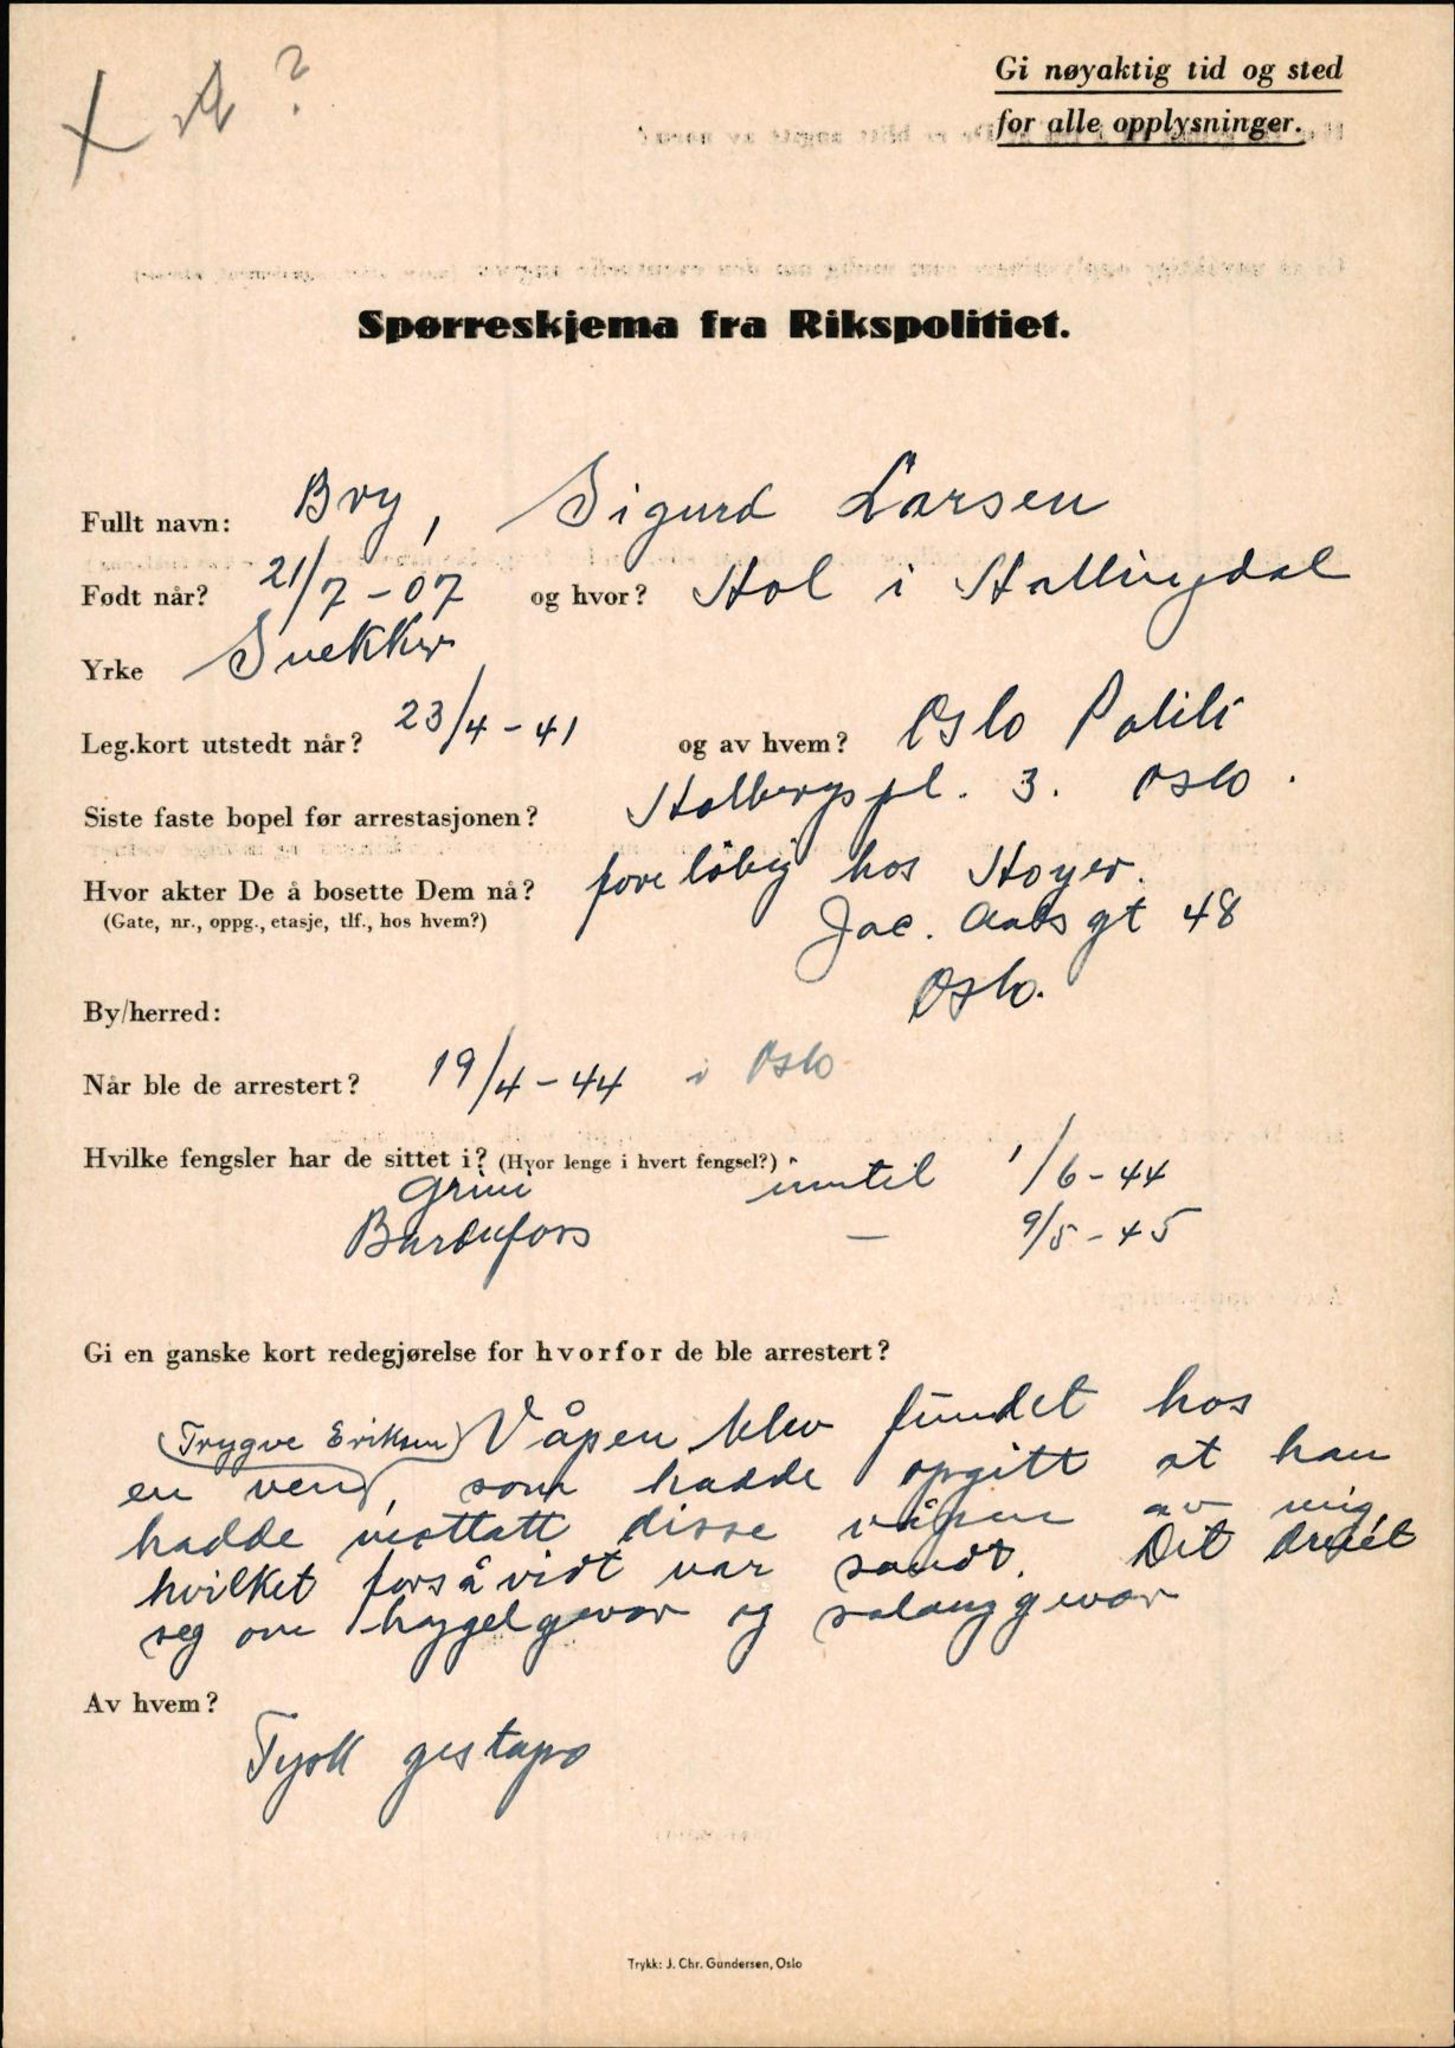 Gi nøyaktig tid og sted
for alle opplysninger.
Spørreskjema fra Rikspolitiet.
Fullt navn: Bry, Sigurd Larsen
Født når? 21/7 - 07 og hvor? Hol i Hallingdal
Yrke Snekker
Leg.kort utstedt når? 23/4 - 41 og av hvem? Oslo Politi
Siste faste bopel før arrestasjonen? Holbergs pl. 3. Oslo.
Hvor akter De å bosette Dem nå? foreløbig hos Høyer.
(Gate, nr., oppg., etasje, tlf., hos hvem?) Jac. Aals gt 48
Oslo.
By/herred:
Når ble de arrestert? 19/4 - 44 i Oslo
Hvilke fengsler har de sittet i? (Hvor lenge i hvert fengsel?)
Grini inntil 1/6 - 44
Bardufoss — 9/5 - 45
Gi en ganske kort redegjørelse for hvorfor de ble arrestert?
(Trygve Eriksen) Våpen blev fundet hos
en ven, som hadde opgitt at han
hadde mottatt disse våpen av mig,
hvilket forsåvidt var sandt. Det dreiet
seg om haggelgevær og salonggevær
Av hvem?
Tysk gestapo
Trykk: J. Chr. Gundersen, Oslo